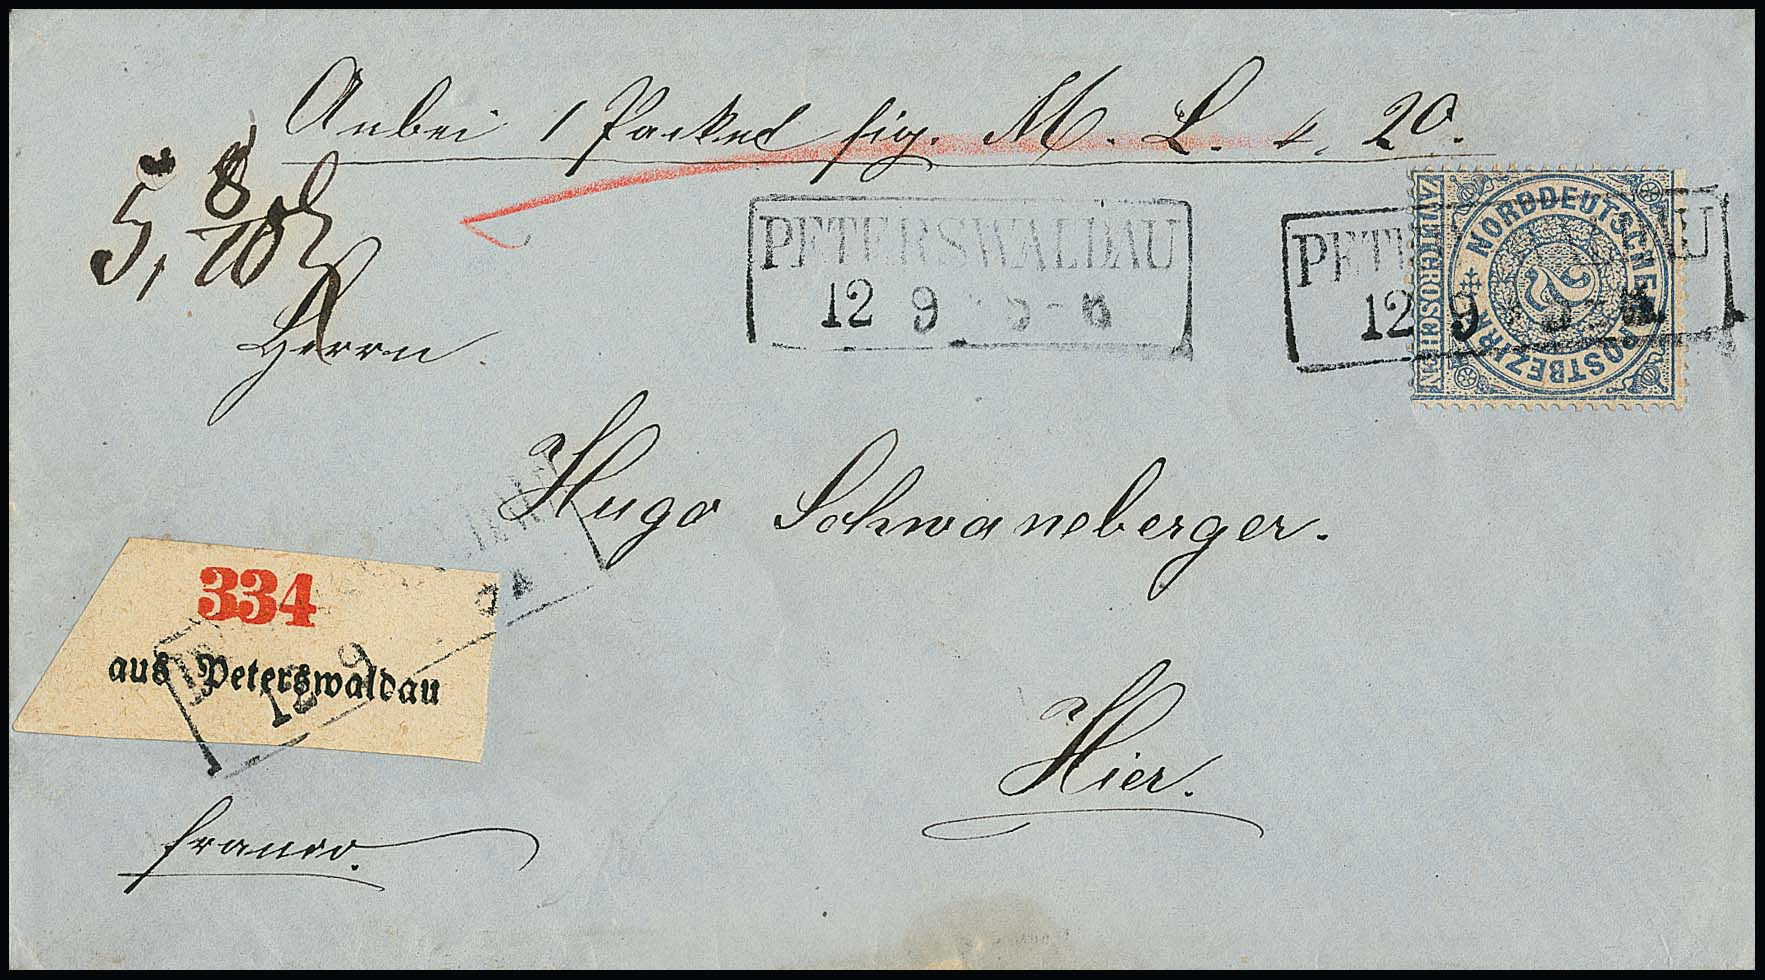 Anbei 1 Packet sig. M. L. 4. 20.
5, 8/10
PETERSWALDAU
12 9
PETERSWALDAU
12 9
NORDDEUTSCHER POSTBEZIRK
2
ZWEI GROSCHEN
Herrn
Hugo Schwaneberger.
334
aus Peterswaldau
12 9
Hier.
franco.